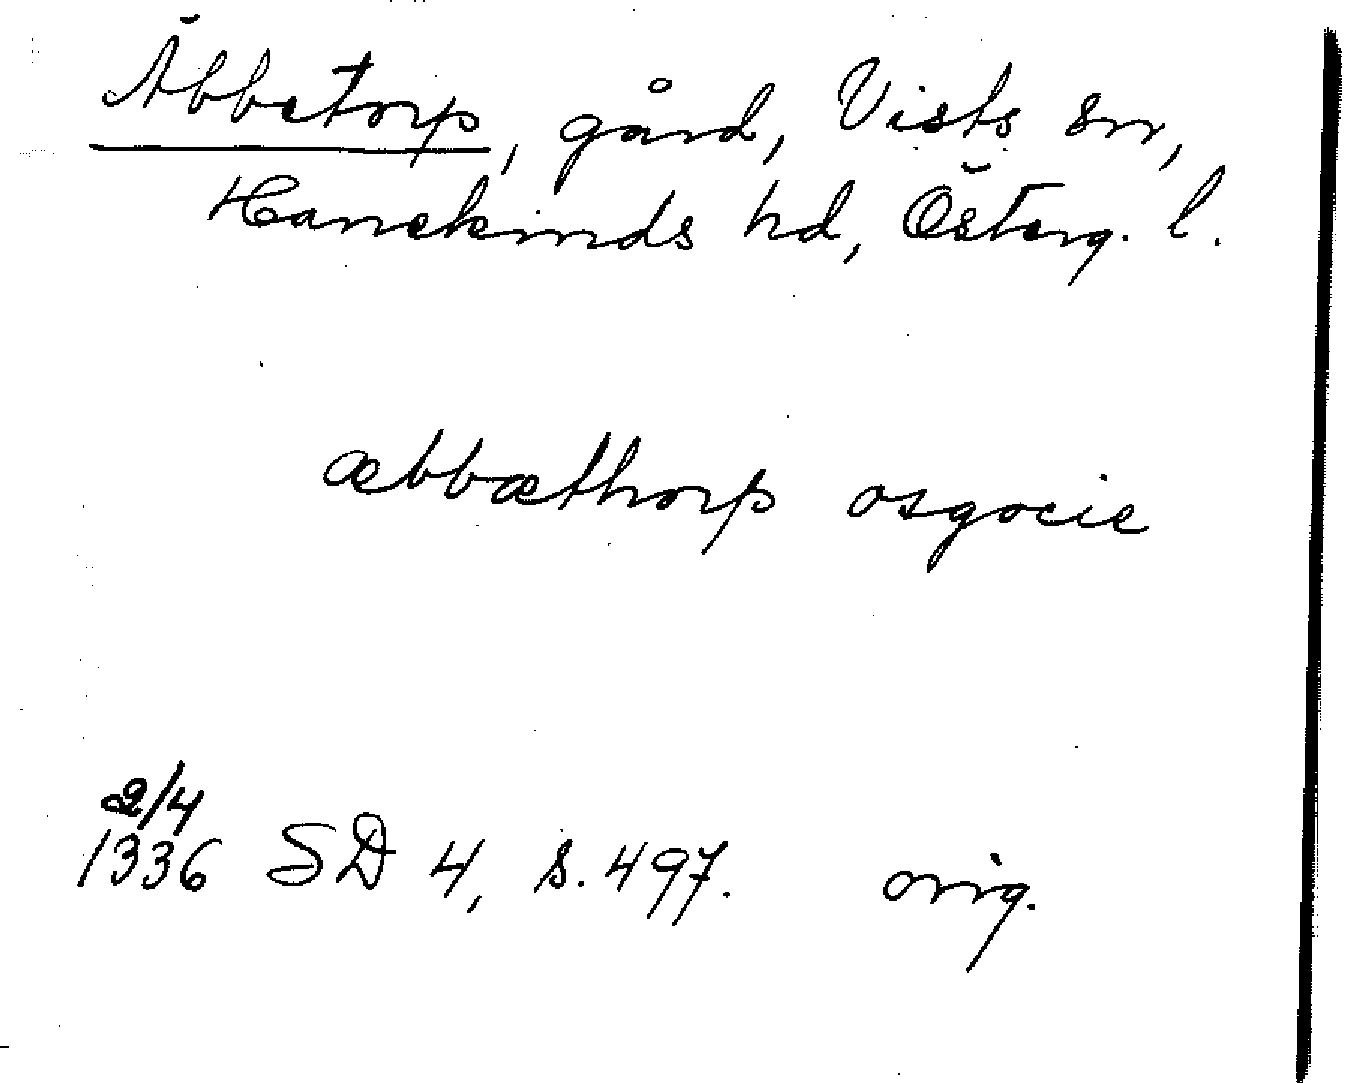 Äbbetorp, gård, Vists sn,
Hanekinds hd, Österg. l.
æbbæthorp osgocie
2/4
1336 SD 4, s. 497. orig.